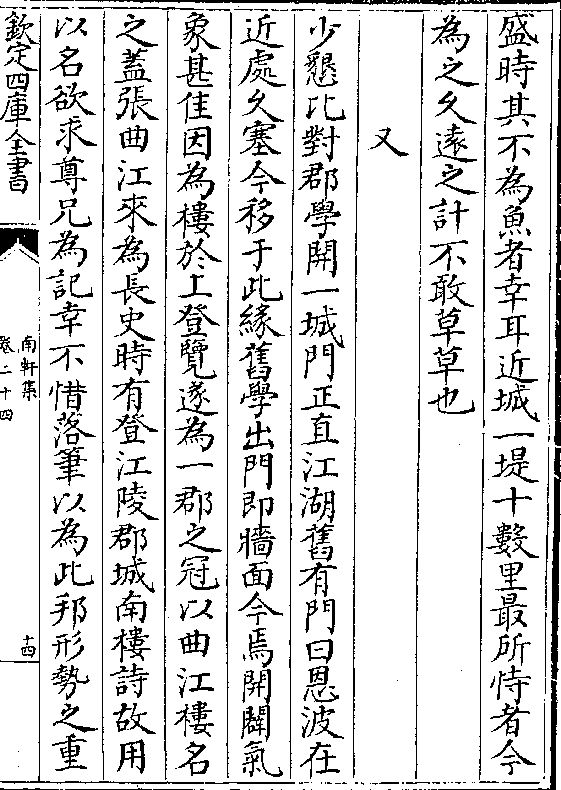 盛時其不為魚者幸耳近城一堤十數里最所恃者今
為之久遠之計不敢草草也
又
少懇比對郡學開一城門正直江湖舊有門曰恩波在
近處久塞今移于此緣舊學出門即牆面今焉開闢氣
象甚佳因為樓於上登覽遂為一郡之冠以曲江樓名
之蓋張曲江來為長史時有登江陵郡城南樓詩故用
以名欲求尊兄為記幸不惜落筆以為此邦形勢之重
欽定四庫全書
南軒集
卷二十四
十四